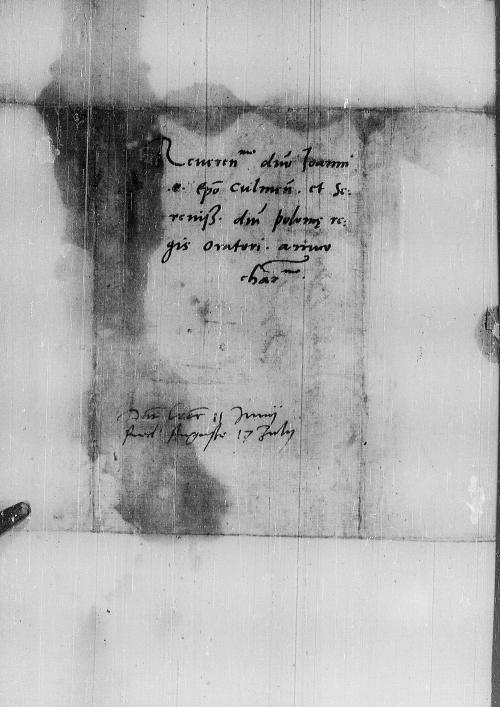 Reveren^mo dno Joanni
.e. Epo Culmen. et Se-
reniss. dni polonię re-
gis oratori. amico
char^mo.
Dat 11 Junii
17 July